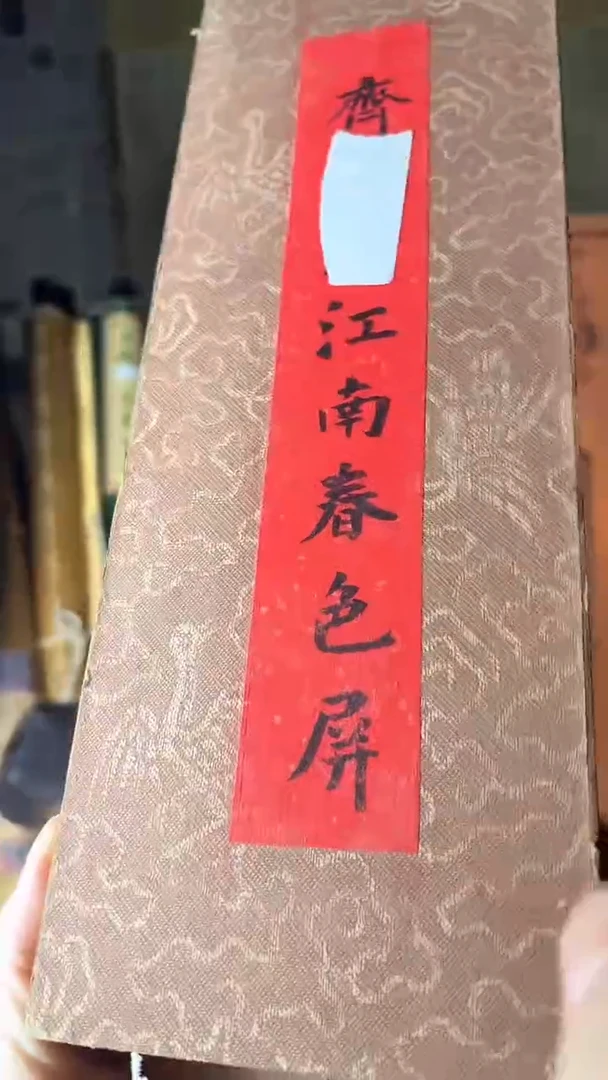 齊
江南春色屏